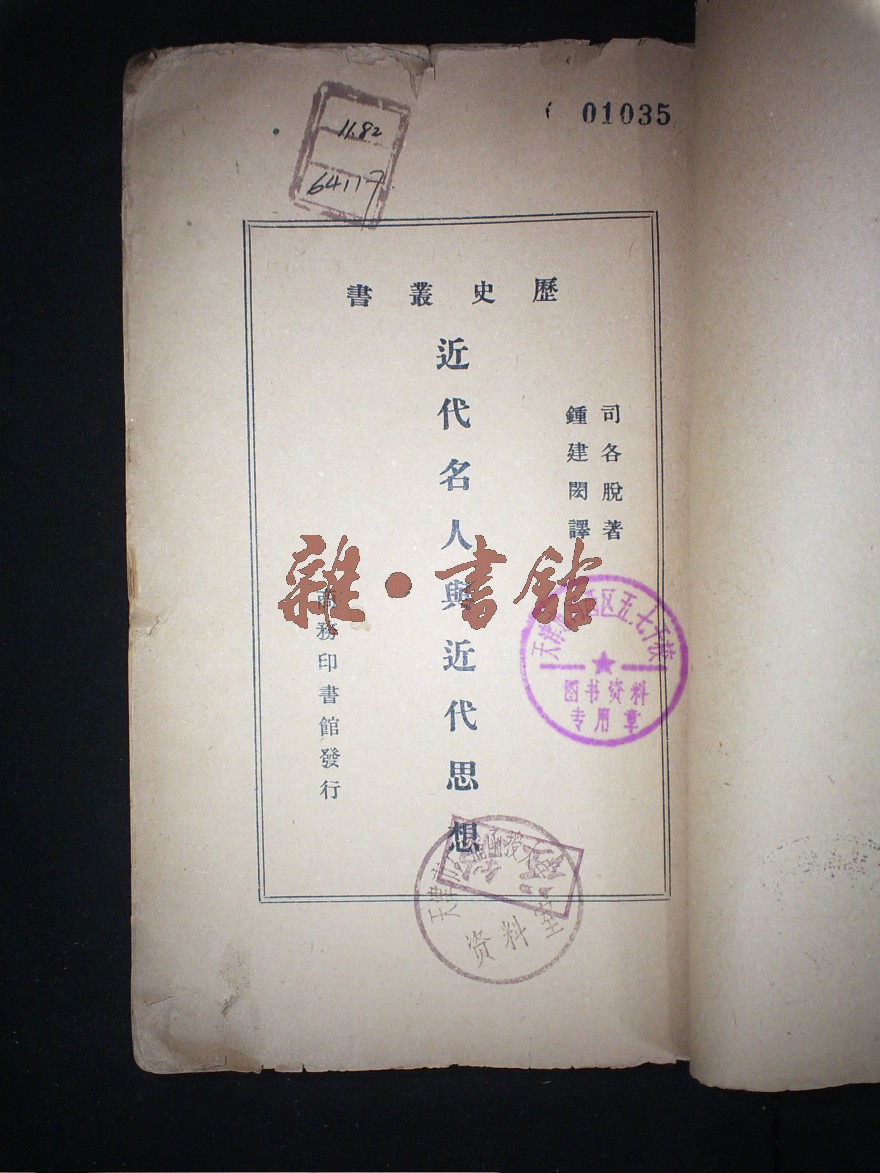 01035
11.82
64117
書叢史歷
司各脫著
鍾建閎譯
近代名人與近代思想
商務印書館發行
雜·書館
五.七干校
图书资料
专用章
资料室